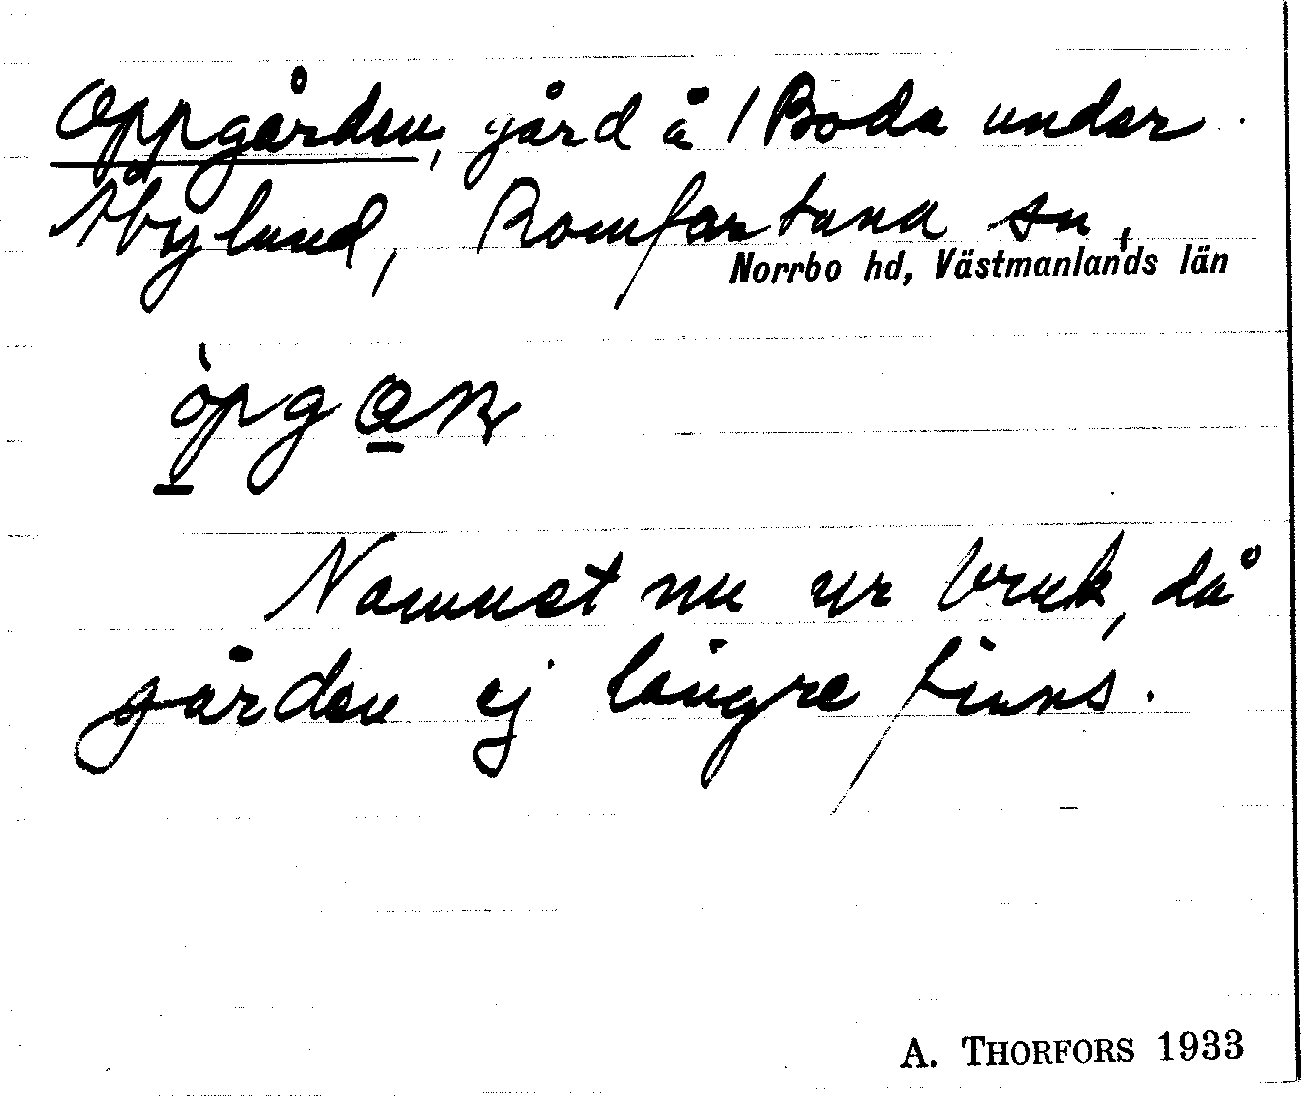 Oppgården, gård å 1 Boda under
Åbylund, Romfartuna sn,
Norrbo hd, Västmanlands län
Namnet nu ur bruk, då
gården ej längre finns.
A. THORFORS 1933